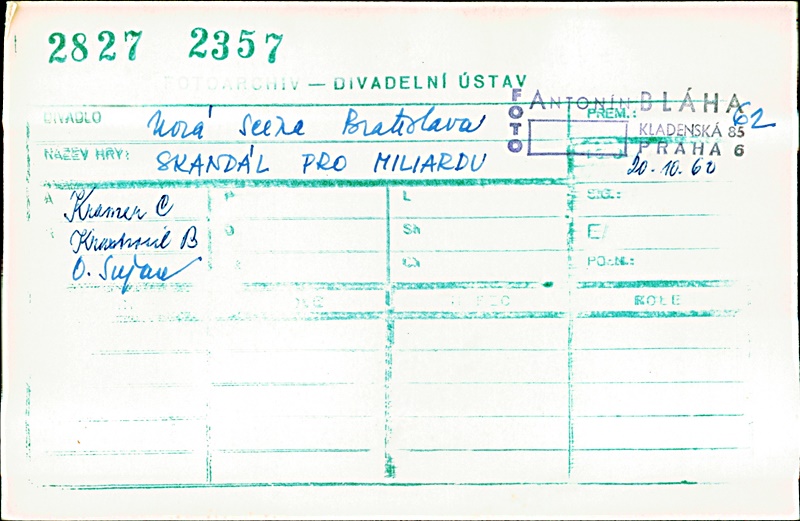 2827 2357
FOTOARCHIV — DIVADELNÍ ÚSTAV
DIVADLO Nová scéna Bratislava
NÁZEV HRY: SKANDÁL PRO MILIARDU
PREM.: 62
FOTO ANTONÍN BLÁHA
KLADENSKÁ 85
PRAHA 6
20.10.60
A Kramer C
B
O. Sujan
P
O
L
Sh
Ch
SIG.:
E/
POZN.:
ROLE